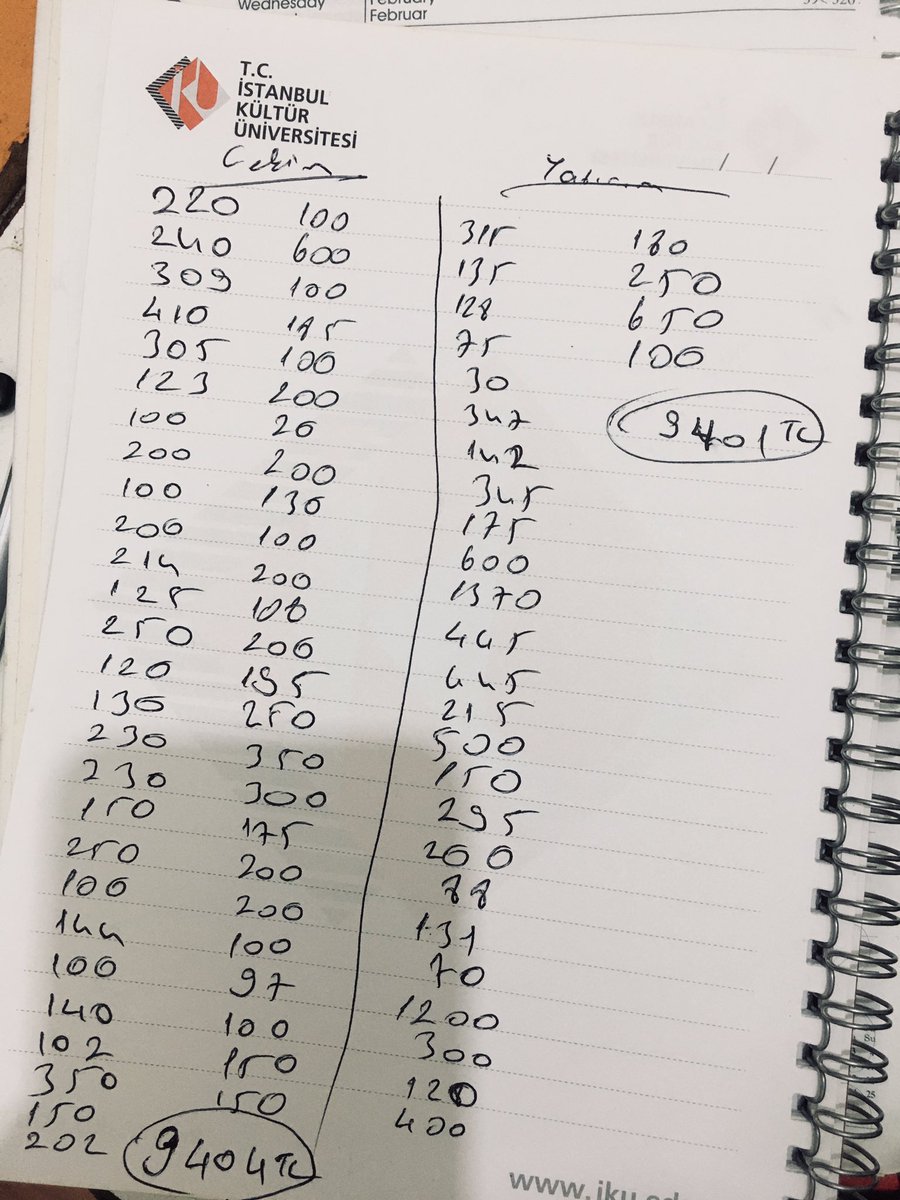 Wednesday
February
Februar
T.C.
İSTANBUL
KÜLTÜR
ÜNİVERSİTESİ
Çekim
220
240
309
410
305
123
100
200
100
200
214
125
250
120
130
230
230
150
250
100
144
100
140
102
350
150
202
100
600
100
195
100
200
20
200
130
100
200
100
200
195
250
350
300
175
200
200
100
97
100
150
150
9404 TL
Yatırım
/ /
315
135
128
75
30
347
142
345
175
600
1370
445
445
215
500
150
295
200
88
131
70
1200
300
120
400
130
250
650
100
9401 TL
www.iku.ed